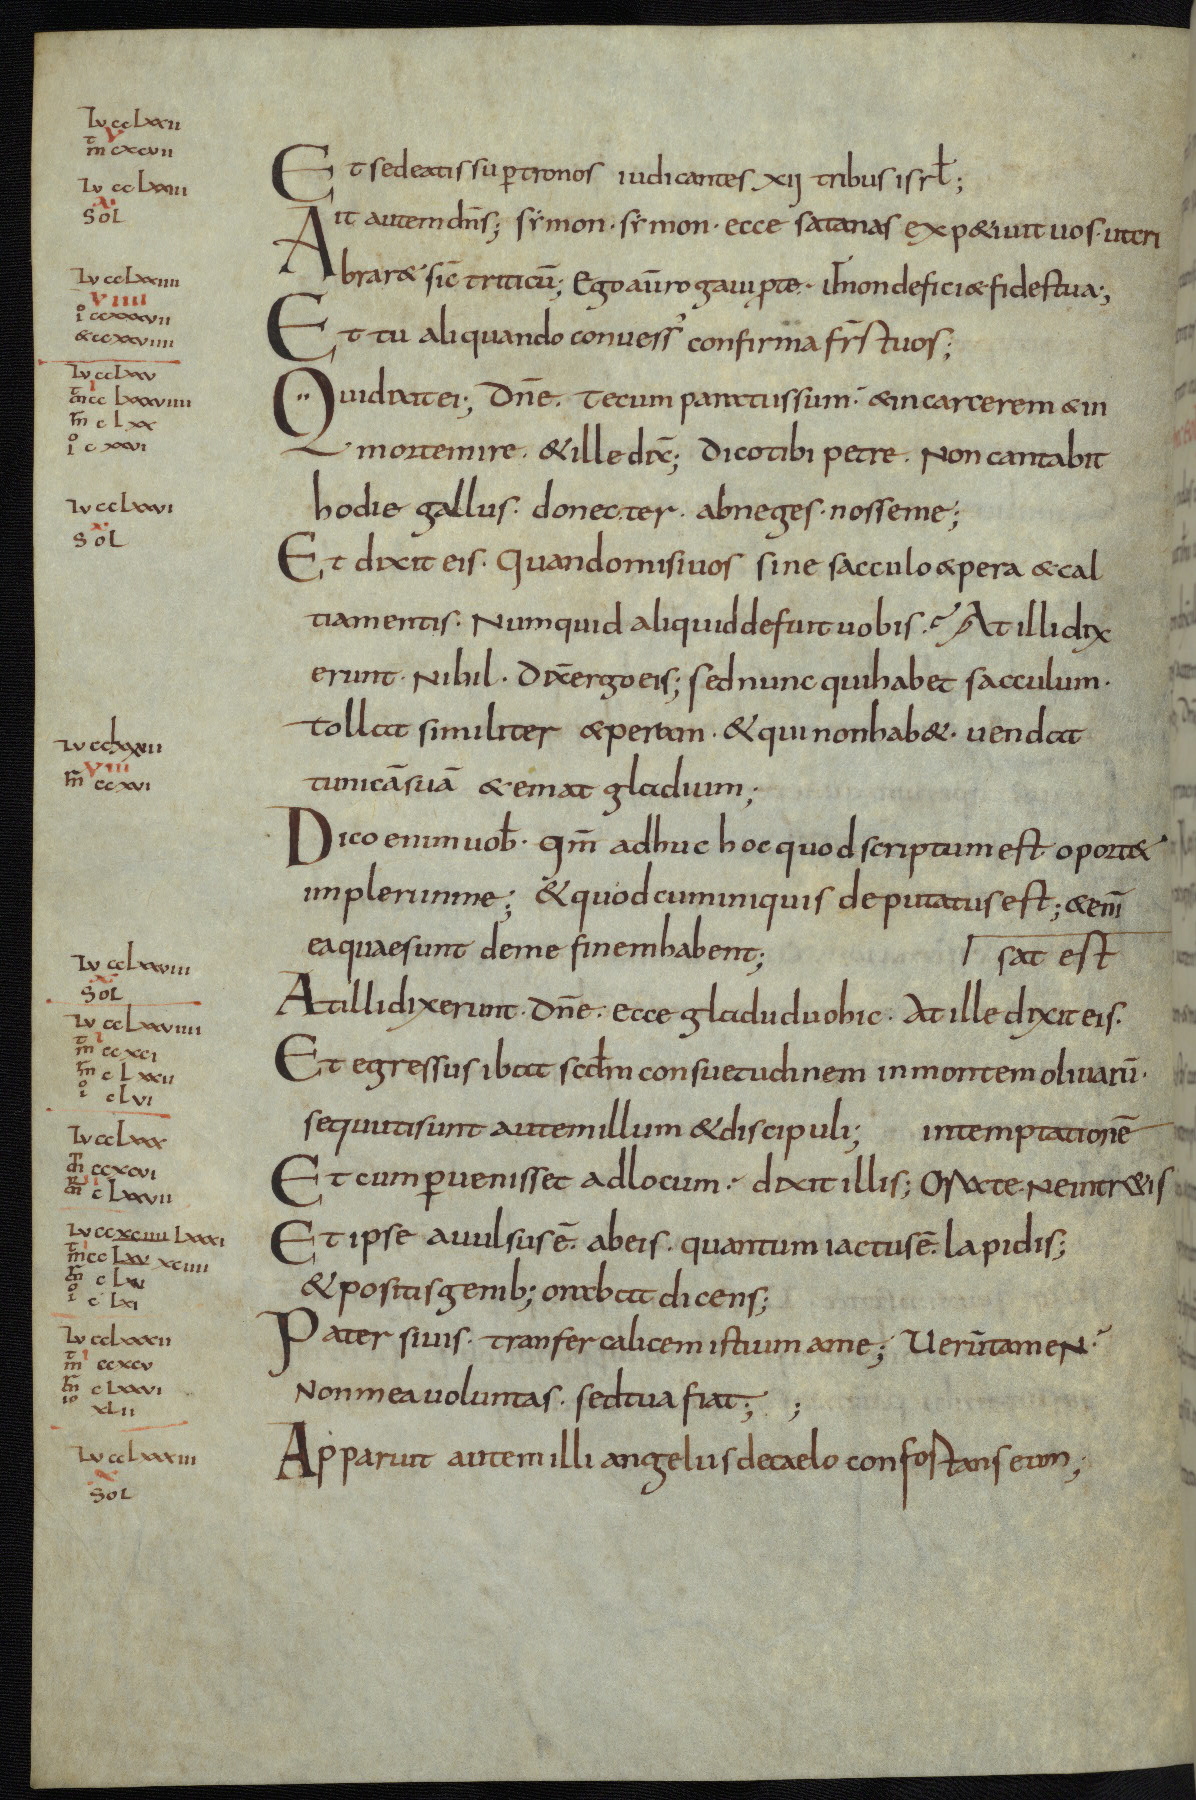 lv cclxxii
v
mt cxcvii
lv cclxxiii
x
Sol
lv cclxxiiii
viiii
io ccxxxvii
& ccxxviiii
lv cclxxv
i
mt cclxxxviiii
mr clxx
io cxxvi
lv cclxxvi
x
Sol
lv cclxxvii
viii
mr ccxvi
lv cclxxviii
x
Sol
lv cclxxviiii
i
mt ccxci
mr clxxii
io clvi
lv cclxxx
mt ccxcvi
mr clxxvii
lv ccxciiii lxxxi
i
mt cclxv xciiii
mr clxv
io clxi
lv cclxxxii
i
mt ccxcv
mr clxxvi
io xlii
lv cclxxxiii
x
Sol
Et sedeatis sup̄ tronos iudicantes xij tribus isrł;
Ait autem dn̄s; sẏmon · sẏmon · ecce satanas exp&iuit uos · ut cri
brar& sic̄ triticū; Ego aūrogaui p̄ te · ut̄ non defici& fides tua;
Et tu aliquando conuers᾽ confirma fr̄s tuos;
Qui dixit ei; Dn̄e · tecum paratus sum · & in carcerem & in
mortem ire · & ille dix̄; Dico tibi petre · Non cantabit
hodie gallus · donec ter · abneges · nosse me;
Et dixit eis · Quando misi uos sine sacculo & pera & cal
tiamentis · Numquid aliquid defuit uobis · At illi dix
erunt · Nihil · Dix̄ ergo eis; sed nunc qui habet sacculum ·
tollat similiter & peram · & qui non hab& · uendat
tunicā suā & emat gladium;
Dico enim uob̄ · qm̄ adhuc hoc quod scriptum est oport&
impleri in me; & quod cum iniquis deputatus est; & em̄
ea quae sunt de me finem habent; sat est
At illi dixerunt · Dn̄e · ecce gladii duo hic · At ille dixit eis ·
Et egressus ibat scd̄m consuetudinem in montem oliuarū ·
sequuti sunt autem illum & discipuli; in temptationē
Et cum p̄uenisset ad locum · dixit illis; Orate · Ne intr&is
Et ipse auulsus ē · ab eis · quantum iactus ē · lapidis;
& positis genib; orabat dicens;
Pater si uis · transfer calicem istum a me; Uerūtamen ·
Non mea uoluntas · sed tua fiat; ;
Apparuit autem illi angelus de caelo confortans eum;